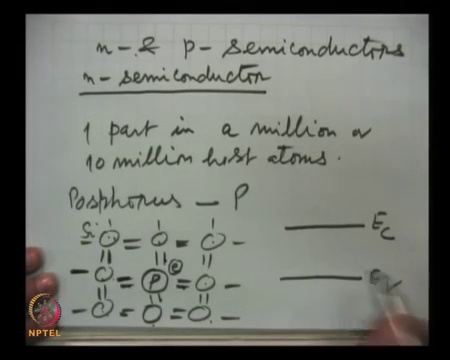 n- & p- semiconductors
n- semiconductor
1 part in a million or
10 million host atoms.
Posphorus — P
Si
P
e
E_C
E_V
NPTEL